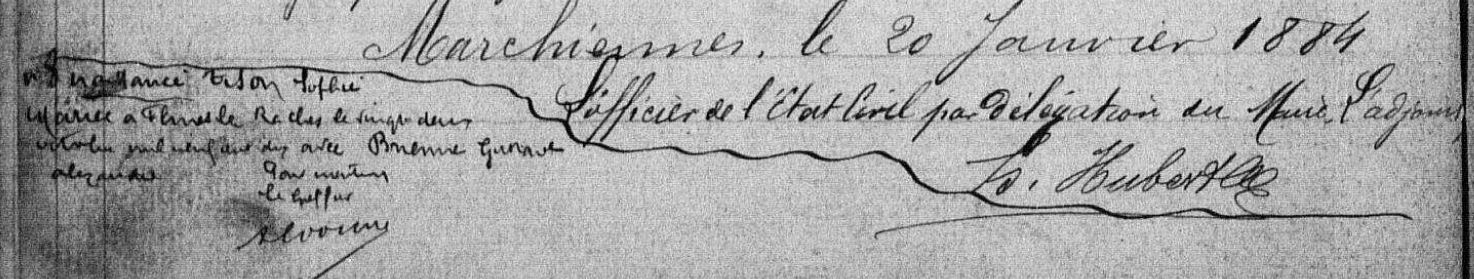 Marchiennes, le 20 Janvier 1884
L'officier de l'Etat Civil par délégation du Maire, L'adjoint
h. Hubert
naissance Tison Sophie
Mariée a Flines le Raches le vingt deux
octobre mil neuf cent dix avec Brienne Gustave
alexandre
Pour mention
le Greffier